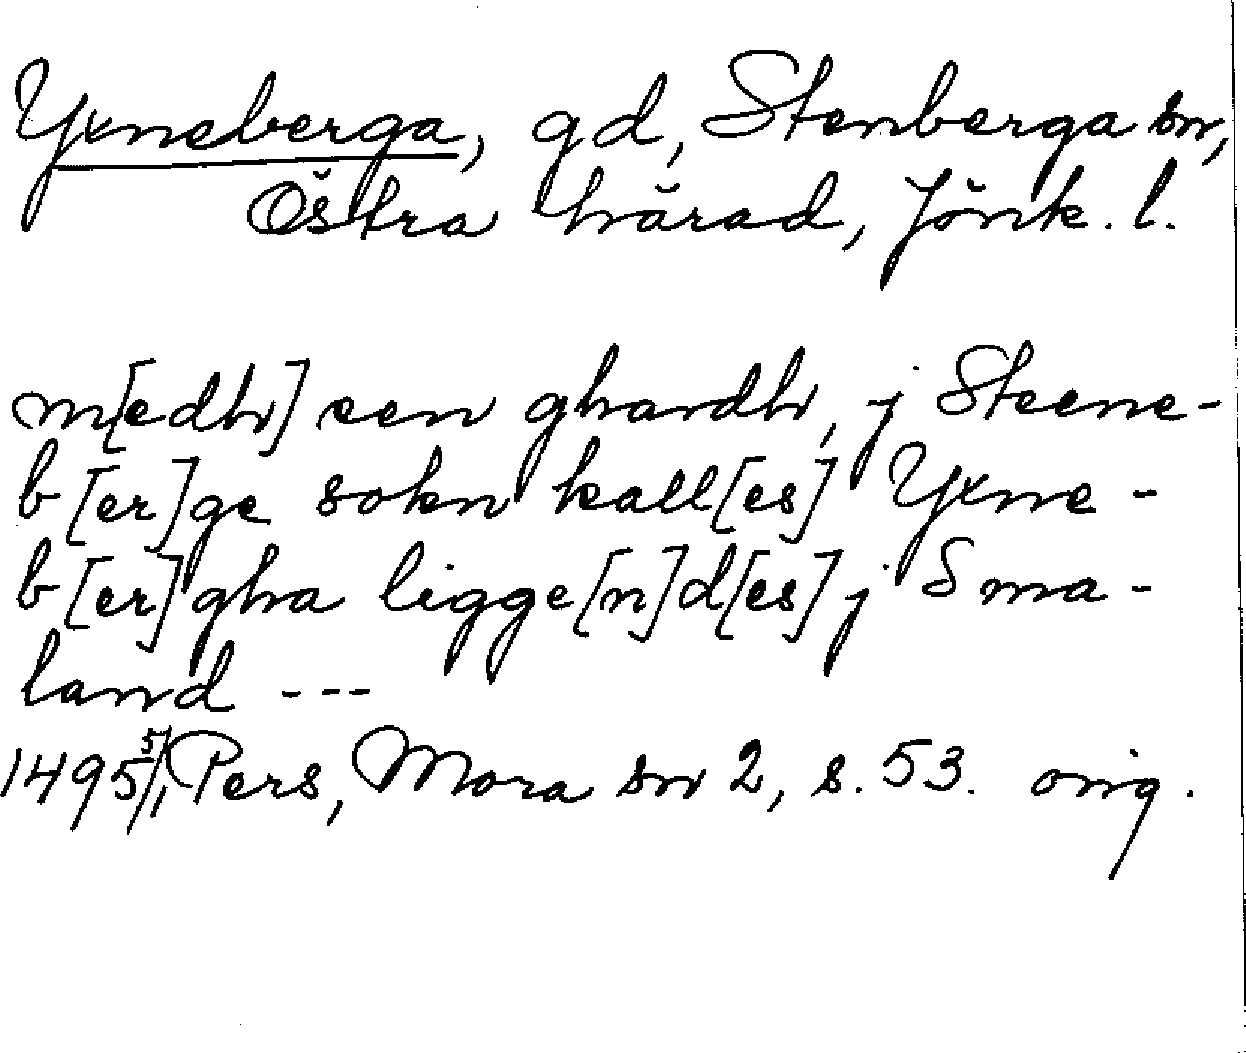 Yxneberga, gd, Stenberga sn,
Östra härad, Jönk. l.
m[edh] een ghardh, j Steene-
b[er]ge sokn kall[es] Yxne-
b[er]gha ligge[n]d[es] j Sma-
land ---
1495 5/1, Pers, Mora sn 2, s. 53. orig.